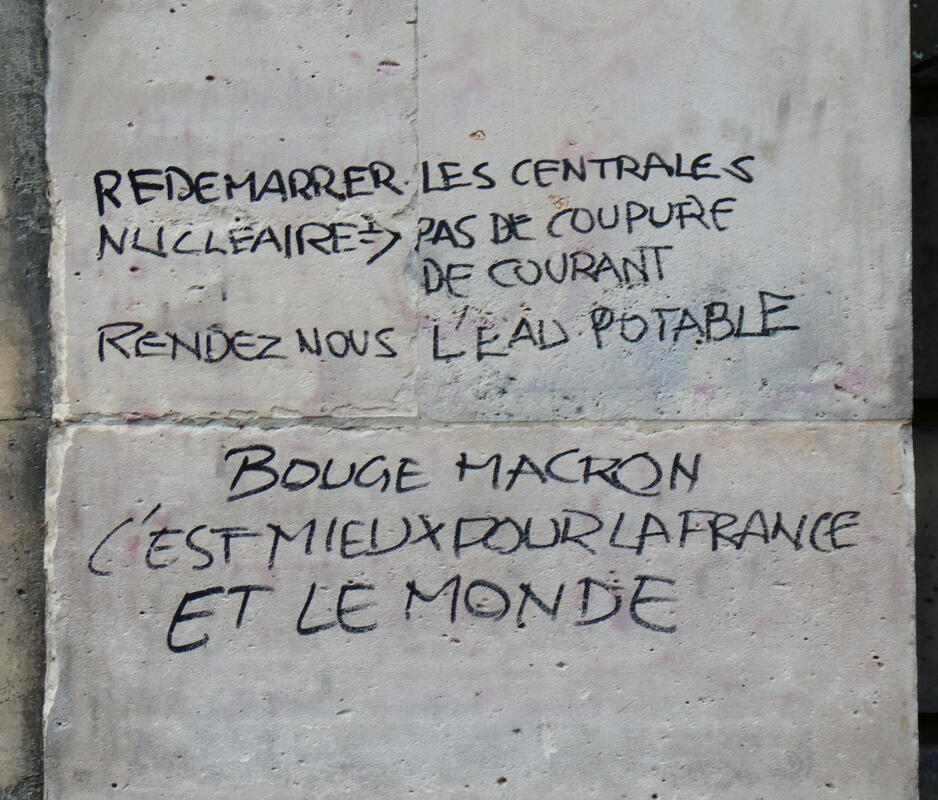 REDEMARRER LES CENTRALES
NUCLÉAIRE => PAS DE COUPURE
DE COURANT
RENDEZ NOUS L'EAU POTABLE
BOUGE MACRON
C'EST MIEUX POUR LA FRANCE
ET LE MONDE